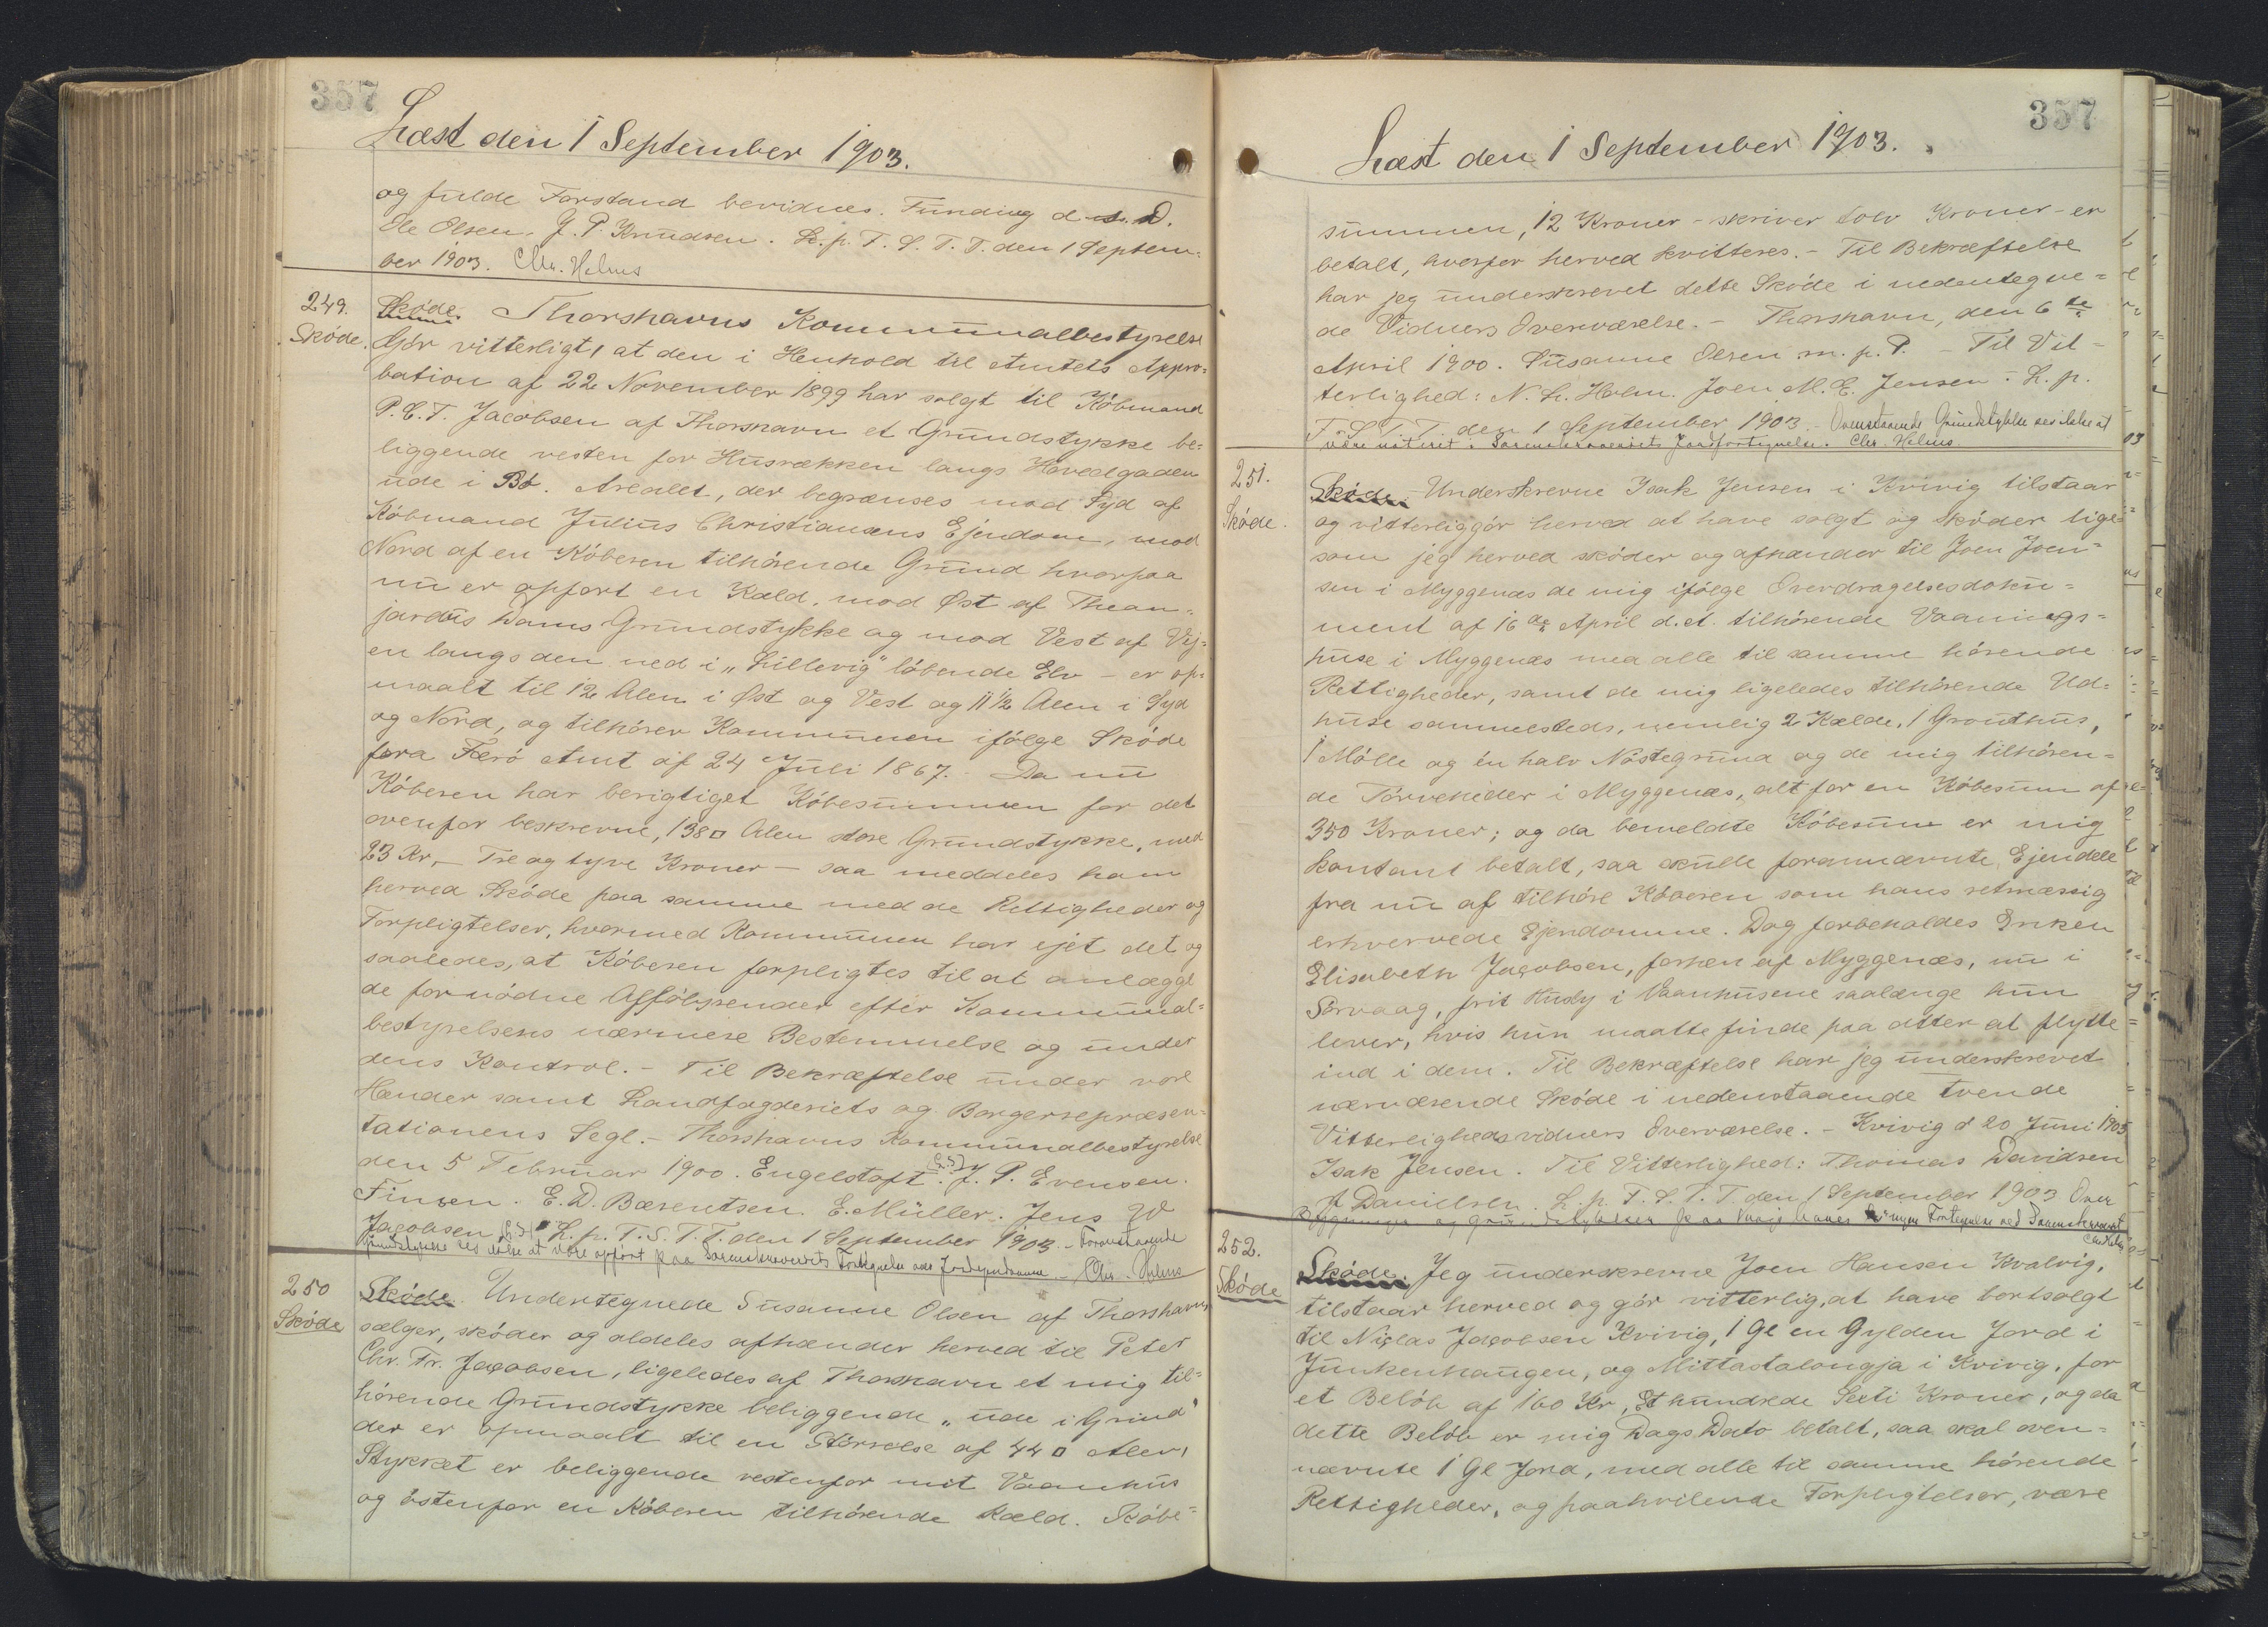 357
Læst den 1 September 1903.
og fulde Forstand bevidnes. Funding d. s. D.
Ole Olsen. J. P. Knudsen. L. p. F. S. T. T. den 1 Septem-
ber 1903. Chr. Helms
249.
Skøde.
Skøde. Thorshavns Kommunalbestyrelse
Gør vitterligt, at den i Henhold til Amtets Appro=
bation af 22 November 1899 har solgt til Købmand
P. C. F. Jacobsen af Thorshavn et Grundstykke be-
liggende vesten for Husrækken langs Hovedgaden
ude i Bø. Arealet, der begrænses mod Syd af
Købmand Julius Christiansens Ejendom, mod
Nord af en Køberen tilhørende Grund hvorpaa
nu er opført en Kæld, mod Øst af Thean-
jardus Dams Grundstykke og mod Vest af Vej=
en langs den ned i „Lillevig" løbende Elv - er op=
maalt til 12 Alen i Øst og Vest og 11½ Alen i Syd
og Nord, og tilhører Kommunen ifølge Skøde
fora Færø Amt af 24 Juli 1867. - Da nu
Køberen har berigtiget Købesummen for det
ovenfor beskrevne, 138 □ Alen store Grundstykke, med
23 Kr, - Tre og tyve Kroner - saa meddeles ham
herved Skøde paa samme med de Rettigheder og
Forpligtelser, hvormed Kommunen har ejet det og
saaledes, at Køberen forpligtes til at anlægge
de fornødne Afløbsrender efter Kommunal=
bestyrelsens nærmere Bestemmelse og under
dens Kontrol. - Til Bekræftelse under vore
Hænder samt Landfogderiets og Borgerrepræsen=
tationens Segl. - Thorshavns Kommunalbestyrelse
den 5 Februar 1900. Engelstoft. (L.S.) J. P. Evensen.
Finsen. E. D. Bærentsen. E. Müller. Jens W
Jacobsen (L.S.) L. p. F. S. T. T. den 1 September 1903. - Foranstaaende
Grundstykke ses ikke at være opført paa Sorenskriveriets Fortegnelse over Jordejendomme - Chr. Helms
250
Skøde
Skøde. Undertegnede Susanne Olsen af Thorshavn,
sælger, skøder og aldeles afhænder herved til Peter
Chr. Fr. Jacobsen, ligeledes af Thorshavn et mig til=
hørende Grundstykke beliggende „ude i Grind"
der er opmaalt til en Størrelse af 44 □ Alen,
Stykket er beliggende vestenfor mit Vaanhus
og østenfor en Køberen tilhørende Kæld. Købe=
357
Læst den 1 September 1903.
summen, 12 Kroner - skriver tolv Kroner - er
betalt, hvorfor herved kvitteres. - Til Bekræftelse
har jeg underskrevet dette Skøde i nedentegne=
de Vidners Overværelse. - Thorshavn, den 6te
April 1900. Susanne Olsen m. p. P. - Til Vit-
terlighed: N. L. Holm. Joen M. E. Jensen. - L. p.
F. S. T. T. den 1 September 1903. - Ovenstaaende Grundstykke ses ikke at
være noteret i Sorenskriveriets Jordfortegnelse. Chr. Helms.
251.
Skøde.
Skøde. Underskrevne Isak Jensen i Kvivig tilstaar
og vitterliggør herved at have solgt og skøder lige=
som jeg herved skøder og afhænder til Joen Joen=
sen i Myggenæs de mig ifølge Overdragelsesdoku=
ment af 16de April d. A. tilhørende Vaanings=
huse i Myggenæs med alle til samme hørende
Rettigheder, samt de mig ligeledes tilhørende Ud=
huse sammesteds, nemlig 2 Kælde, 1 Grouthus,
1 Mølle og én halv Nøstegrund og de mig tilhøren=
de Tørveheder i Myggenæs, alt for en Købesum af
350 Kroner; og da bemeldte Købesum er mig
kontant betalt, saa skulle forannævnte Ejendele
fra nu af tilhøre Køberen som hans retmæssig
erhvervede Ejendomme. Dog forbeholdes Enken
Elisabeth Jacobsen, forhen af Myggenæs, nu i
Sørvaag, frit Husly i Vaanhusene saalænge hun
lever, hvis hun maatte finde paa atter at flytte
ind i dem. Til Bekræftelse har jeg underskrevet
nærværende Skøde i nedenstaaende tvende
Vitterlighedsvidners Overværelse. - Kvivig d 20 Juni 1903
Isak Jensen. Til Vitterlighed: Thomas Davidsen
J Danielsen. L. p. F. S. T. T. den 1 September 1903 Over
Bygninger og Grundstykker paa Vaagø haves ingen Fortegnelse ved Sorenskriveriet
Chr. Helms
252.
Skøde
Skøde. Jeg underskrevne Joen Hansen Kvalvig,
tilstaar herved og gør vitterlig, at have bortsolgt
til Niclas Jacobsen Kvivig, 1 Gl en Gylden Jord i
Junkenhaugen, og Mittastalongja i Kvivig, for
et Beløb af 160 Kr, Et hundrede Sexti Kroner, og da
dette Beløb er mig Dags Dato betalt, saa skal oven=
nævnte 1 Gl Jord, med alle til samme hørende
Rettigheder, og paahvilende Forpligtelser, være